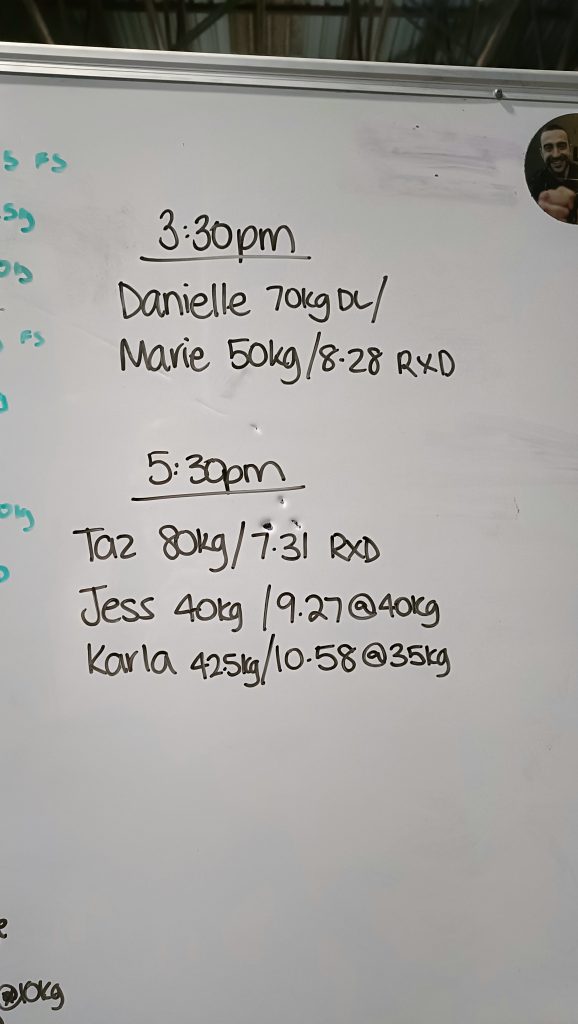 FS
FS
3:30pm
Danielle 70kg DL/
Marie 50kg/8.28 RXD
5:30pm
Taz 80kg/7.31 RXD
Jess 40kg/9.27@40kg
Karla 42.5kg/10.58@35kg
@10kg